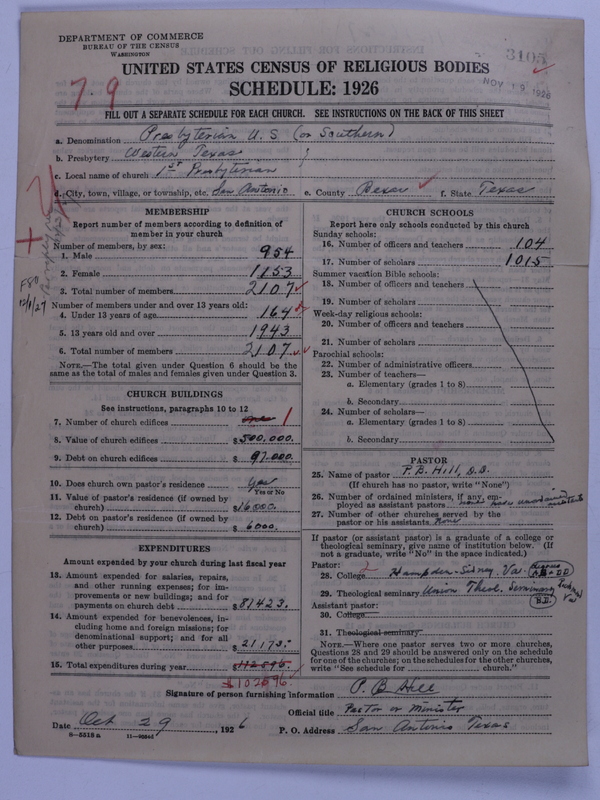 DEPARTMENT OF COMMERCE
BUREAU OF THE CENSUS
WASHINGTON
3105
NOV 19 1926
UNITED STATES CENSUS OF RELIGIOUS BODIES
SCHEDULE: 1926
7 9
FILL OUT A SEPARATE SCHEDULE FOR EACH CHURCH. SEE INSTRUCTIONS ON THE BACK OF THIS SHEET
a. Denomination Presbyterian U.S. (or Southern)
b. Presbytery Western Texas
c. Local name of church 1st Presbyterian
d. City, town, village, or township, etc. San Antonio e. County Bexar f. State Texas
MEMBERSHIP
Report number of members according to definition of member in your church
Number of members, by sex:
1. Male 954
2. Female 1153
3. Total number of members 2107
Number of members under and over 13 years old:
4. Under 13 years of age 164
5. 13 years old and over 1943
6. Total number of members 2107
NOTE.—The total given under Question 6 should be the
same as the total of males and females given under Question 3.
F80
12/1/27
CHURCH BUILDINGS
See instructions, paragraphs 10 to 12
7. Number of church edifices one 1
8. Value of church edifices $500,000.
9. Debt on church edifices $97,000.
10. Does church own pastor's residence Yes
Yes or No
11. Value of pastor's residence (if owned by
church) $16000.
12. Debt on pastor's residence (if owned by
church) $6000.
EXPENDITURES
Amount expended by your church during last fiscal year
13. Amount expended for salaries, repairs,
and other running expenses; for im-
provements or new buildings; and for
payments on church debt $81423.
14. Amount expended for benevolences, in-
cluding home and foreign missions; for
denominational support; and for all
other purposes $21173.-
15. Total expenditures during year $112596.
$102596.
CHURCH SCHOOLS
Report here only schools conducted by this church
Sunday schools:
16. Number of officers and teachers 104
17. Number of scholars 1015
Summer vacation Bible schools:
18. Number of officers and teachers
19. Number of scholars
Week-day religious schools:
20. Number of officers and teachers
21. Number of scholars
Parochial schools:
22. Number of administrative officers
23. Number of teachers—
a. Elementary (grades 1 to 8)
b. Secondary
24. Number of scholars—
a. Elementary (grades 1 to 8)
b. Secondary
PASTOR
25. Name of pastor P. B. Hill, D.D.
(If church has no pastor, write "None")
26. Number of ordained ministers, if any, em-
ployed as assistant pastors none have unordained assistants
27. Number of other churches served by the
pastor or his assistants None
If pastor (or assistant pastor) is a graduate of a college or
theological seminary, give name of institution below. (If
not a graduate, write "No" in the space indicated.)
Pastor: 2
28. College Hampden-Sidney, Va. Degrees AB & DD
29. Theological seminary Union Theol. Seminary Va B.D.
Assistant pastor:
30. College
31. Theological seminary
NOTE.—Where one pastor serves two or more churches,
Questions 28 and 29 should be answered only on the schedule
for one of the churches; on the schedules for the other churches,
write "See schedule for church."
Signature of person furnishing information P. B. Hill
Official title Pastor or Minister
Date Oct 29, 1926 P. O. Address San Antonio Texas
8-5518 a